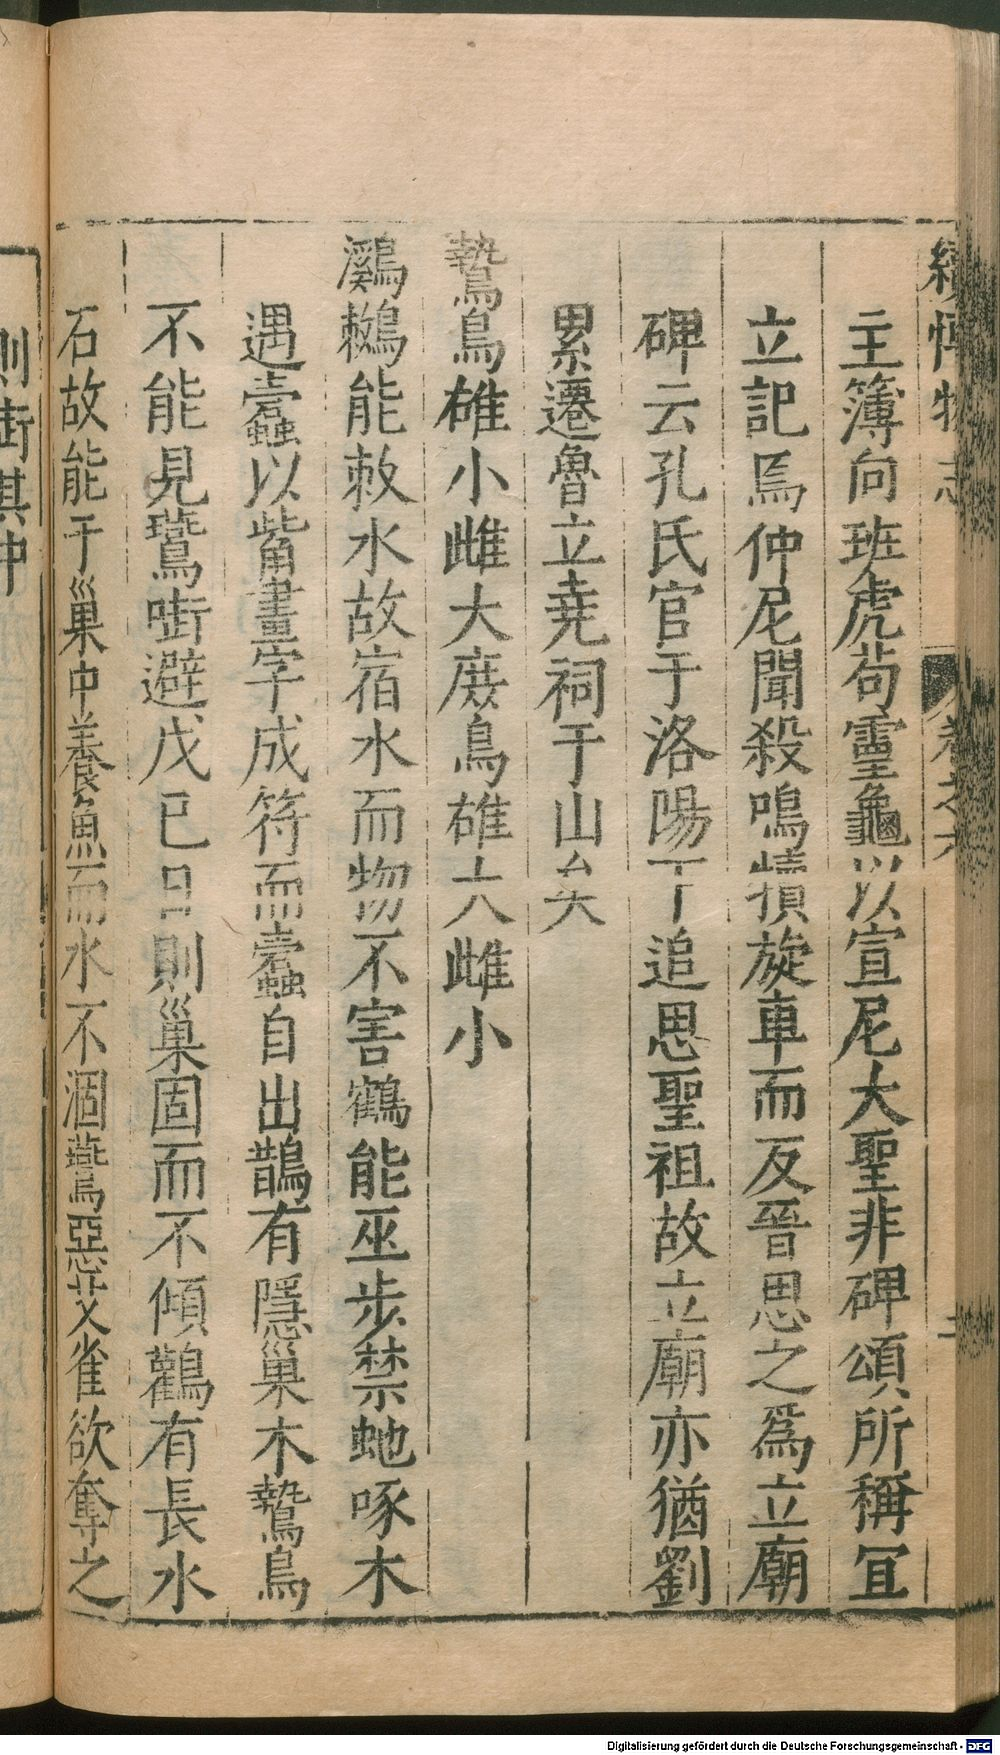 續博物志 卷之六
主簿向班虎苟靈龜以宣尼大聖非碑頌所稱宜
立記焉仲尼聞殺鳴犢旋車而反晉思之爲立廟
碑云孔氏官于洛陽丁追思聖祖故立廟亦猶劉
累遷魯立堯祠于山矣
鷙鳥雄小雌大庻鳥雄大雌小
鸂鶒能敕水故宿水而物不害鶴能巫步禁虵啄木
遇蠹以觜畫字成符而蠹自出鵲有隱巢木鷙鳥
不能見鷰㗸避戊巳日則巢固而不傾鸛有長水
石故能于巢中養魚而水不涸鷰惡艾雀欲奪之
則㗸其中
Digitalisierung gefördert durch die Deutsche Forschungsgemeinschaft - DFG